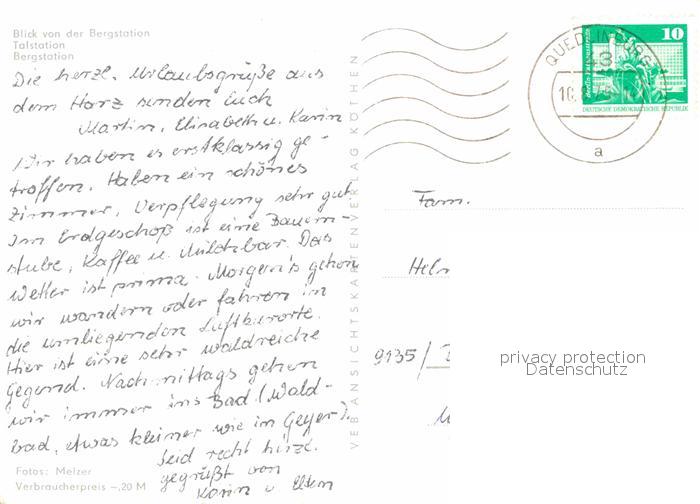 Blick von der Bergstation
Talstation
Bergstation
Die herzl. Urlaubsgrüße aus
dem Harz senden Euch
Martin, Elisabeth u. Karin
Wir haben es erstklassig ge-
troffen. Haben ein schönes
Zimmer, Verpflegung sehr gut.
Im Erdgeschoß ist eine Bauern-
stube, Kaffee u. Milchbar. Das
Wetter ist prima. Morgens gehen
wir wandern oder fahren in
die umliegenden Luftkurorte.
Hier ist eine sehr waldreiche
Gegend. Nachmittags gehen
wir immer ins Bad (Wald-
bad, etwas kleiner wie in Geyer).
Seid recht herzl.
gegrüßt von
Karin u Eltern
Fotos: Melzer
Verbraucherpreis –,20 M
VEB ANSICHTSKARTENVERLAG KÖTHEN
QUEDLINBURG
43
a
10
DEUTSCHE DEMOKRATISCHE REPUBLIK
Fam.
9135/
privacy protection
Datenschutz